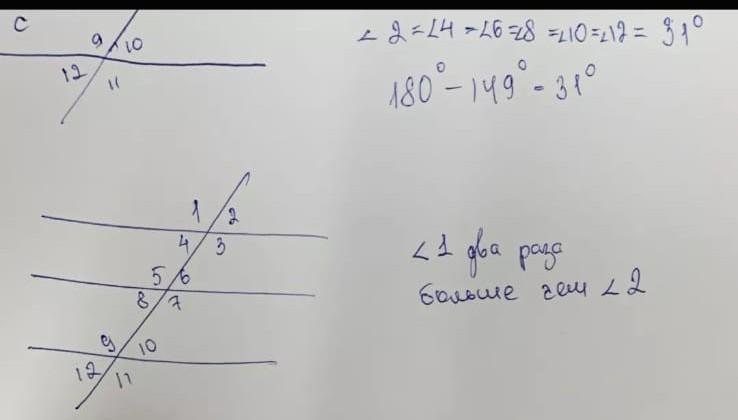 C
∠ 2 = ∠4 = ∠6 = ∠8 = ∠10 = ∠12 = 31°
9 10
12 11
180° - 149° = 31°
1 2
4 3
5 6
8 7
9 10
12 11
∠1 два раза
больше чем ∠2